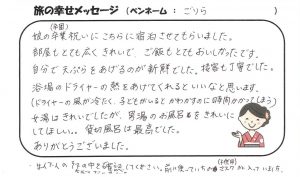 旅の幸せメッセージ (ペンネーム : ごりら )
(卒園)
娘の卒業祝いにこちらに宿泊させてもらいました。
部屋もとても広くきれいで、ご飯もとてもおいしかったです。
自分で天ぷらをあげるのが新鮮でした。接客も丁寧でした。
浴場のドライヤーの熱をあげてくれるといいなと思います。
(ドライヤーの風が冷たく、子どもがいるとかわかすのに時間がかかってしまう)
女湯はきれいでしたが、男湯のお風呂もきれいに
してほしい。。貸切風呂は最高でした。
ありがとうございました。
の中を確認してください。前に使っていた
マスクが入っていました。